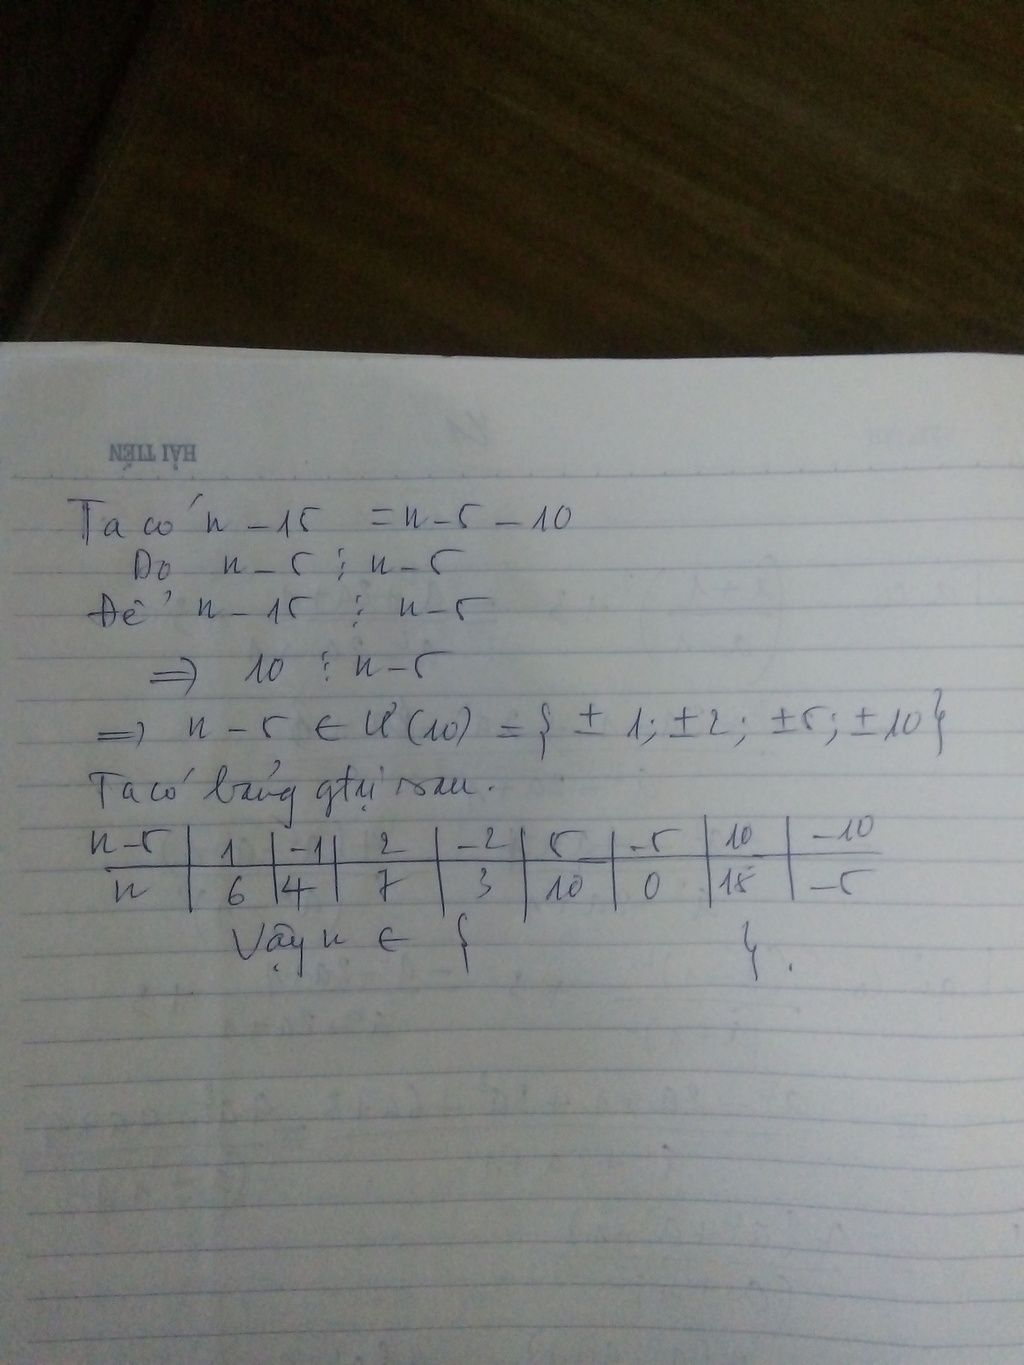 HẢI TIẾN
Ta có n - 15 = n - 5 - 10
Do n - 5 ⋮ n - 5
Để n - 15 ⋮ n - 5
=> 10 ⋮ n - 5
=> n - 5 ∈ Ư(10) = { ± 1; ± 2; ± 5; ± 10 }
Ta có bảng gtrị sau.
n-5 | 1 | -1 | 2 | -2 | 5 | -5 | 10 | -10
n | 6 | 4 | 7 | 3 | 10 | 0 | 15 | -5
Vậy n ∈ { }.